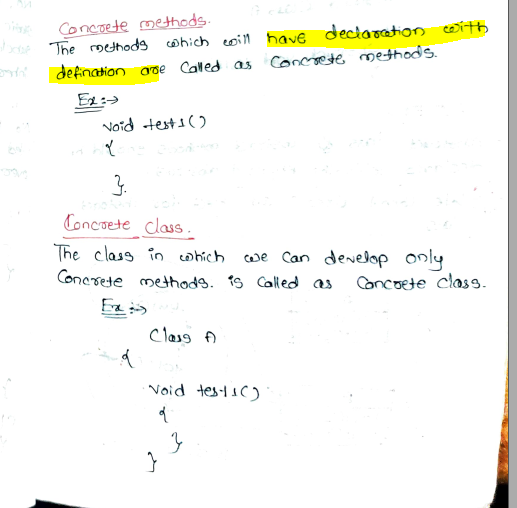 Concrete methods.
The methods which will have declaration with
defination are Called as Concrete methods.
Ex:→
void test1()
{
}.
Concrete class.
The class in which we can develop only
Concrete methods. is Called as Concrete class.
Ex:→
Class A
{
void test1()
{
}
}